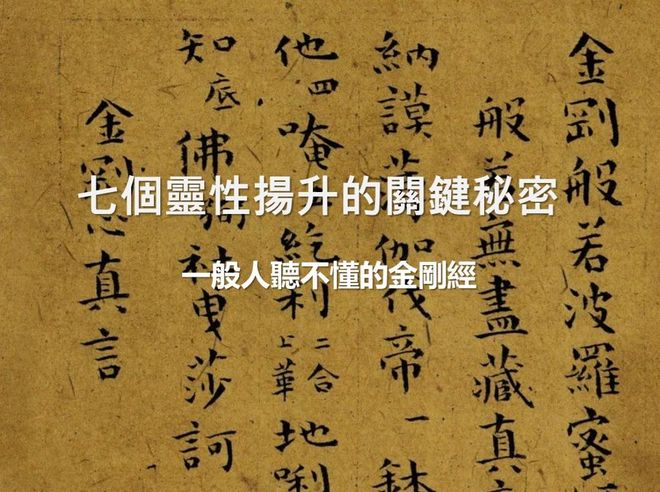 七個靈性揚升的關鍵秘密
一般人聽不懂的金剛經
金剛般若波羅蜜
般若無盡藏真
納謨薄伽伐帝一鉢
他四唵紇利二合上華地唎
知底佛社曳莎訶
金剛心真言